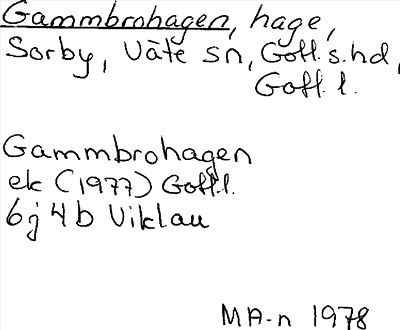 Gammbrohagen, hage,
Sorby, Väte sn, Gotl. s. hd,
Gotl. l.
Gammbrohagen
ek (1977) Gotl. l.
6j 4 b Viklau
MA-n 1978